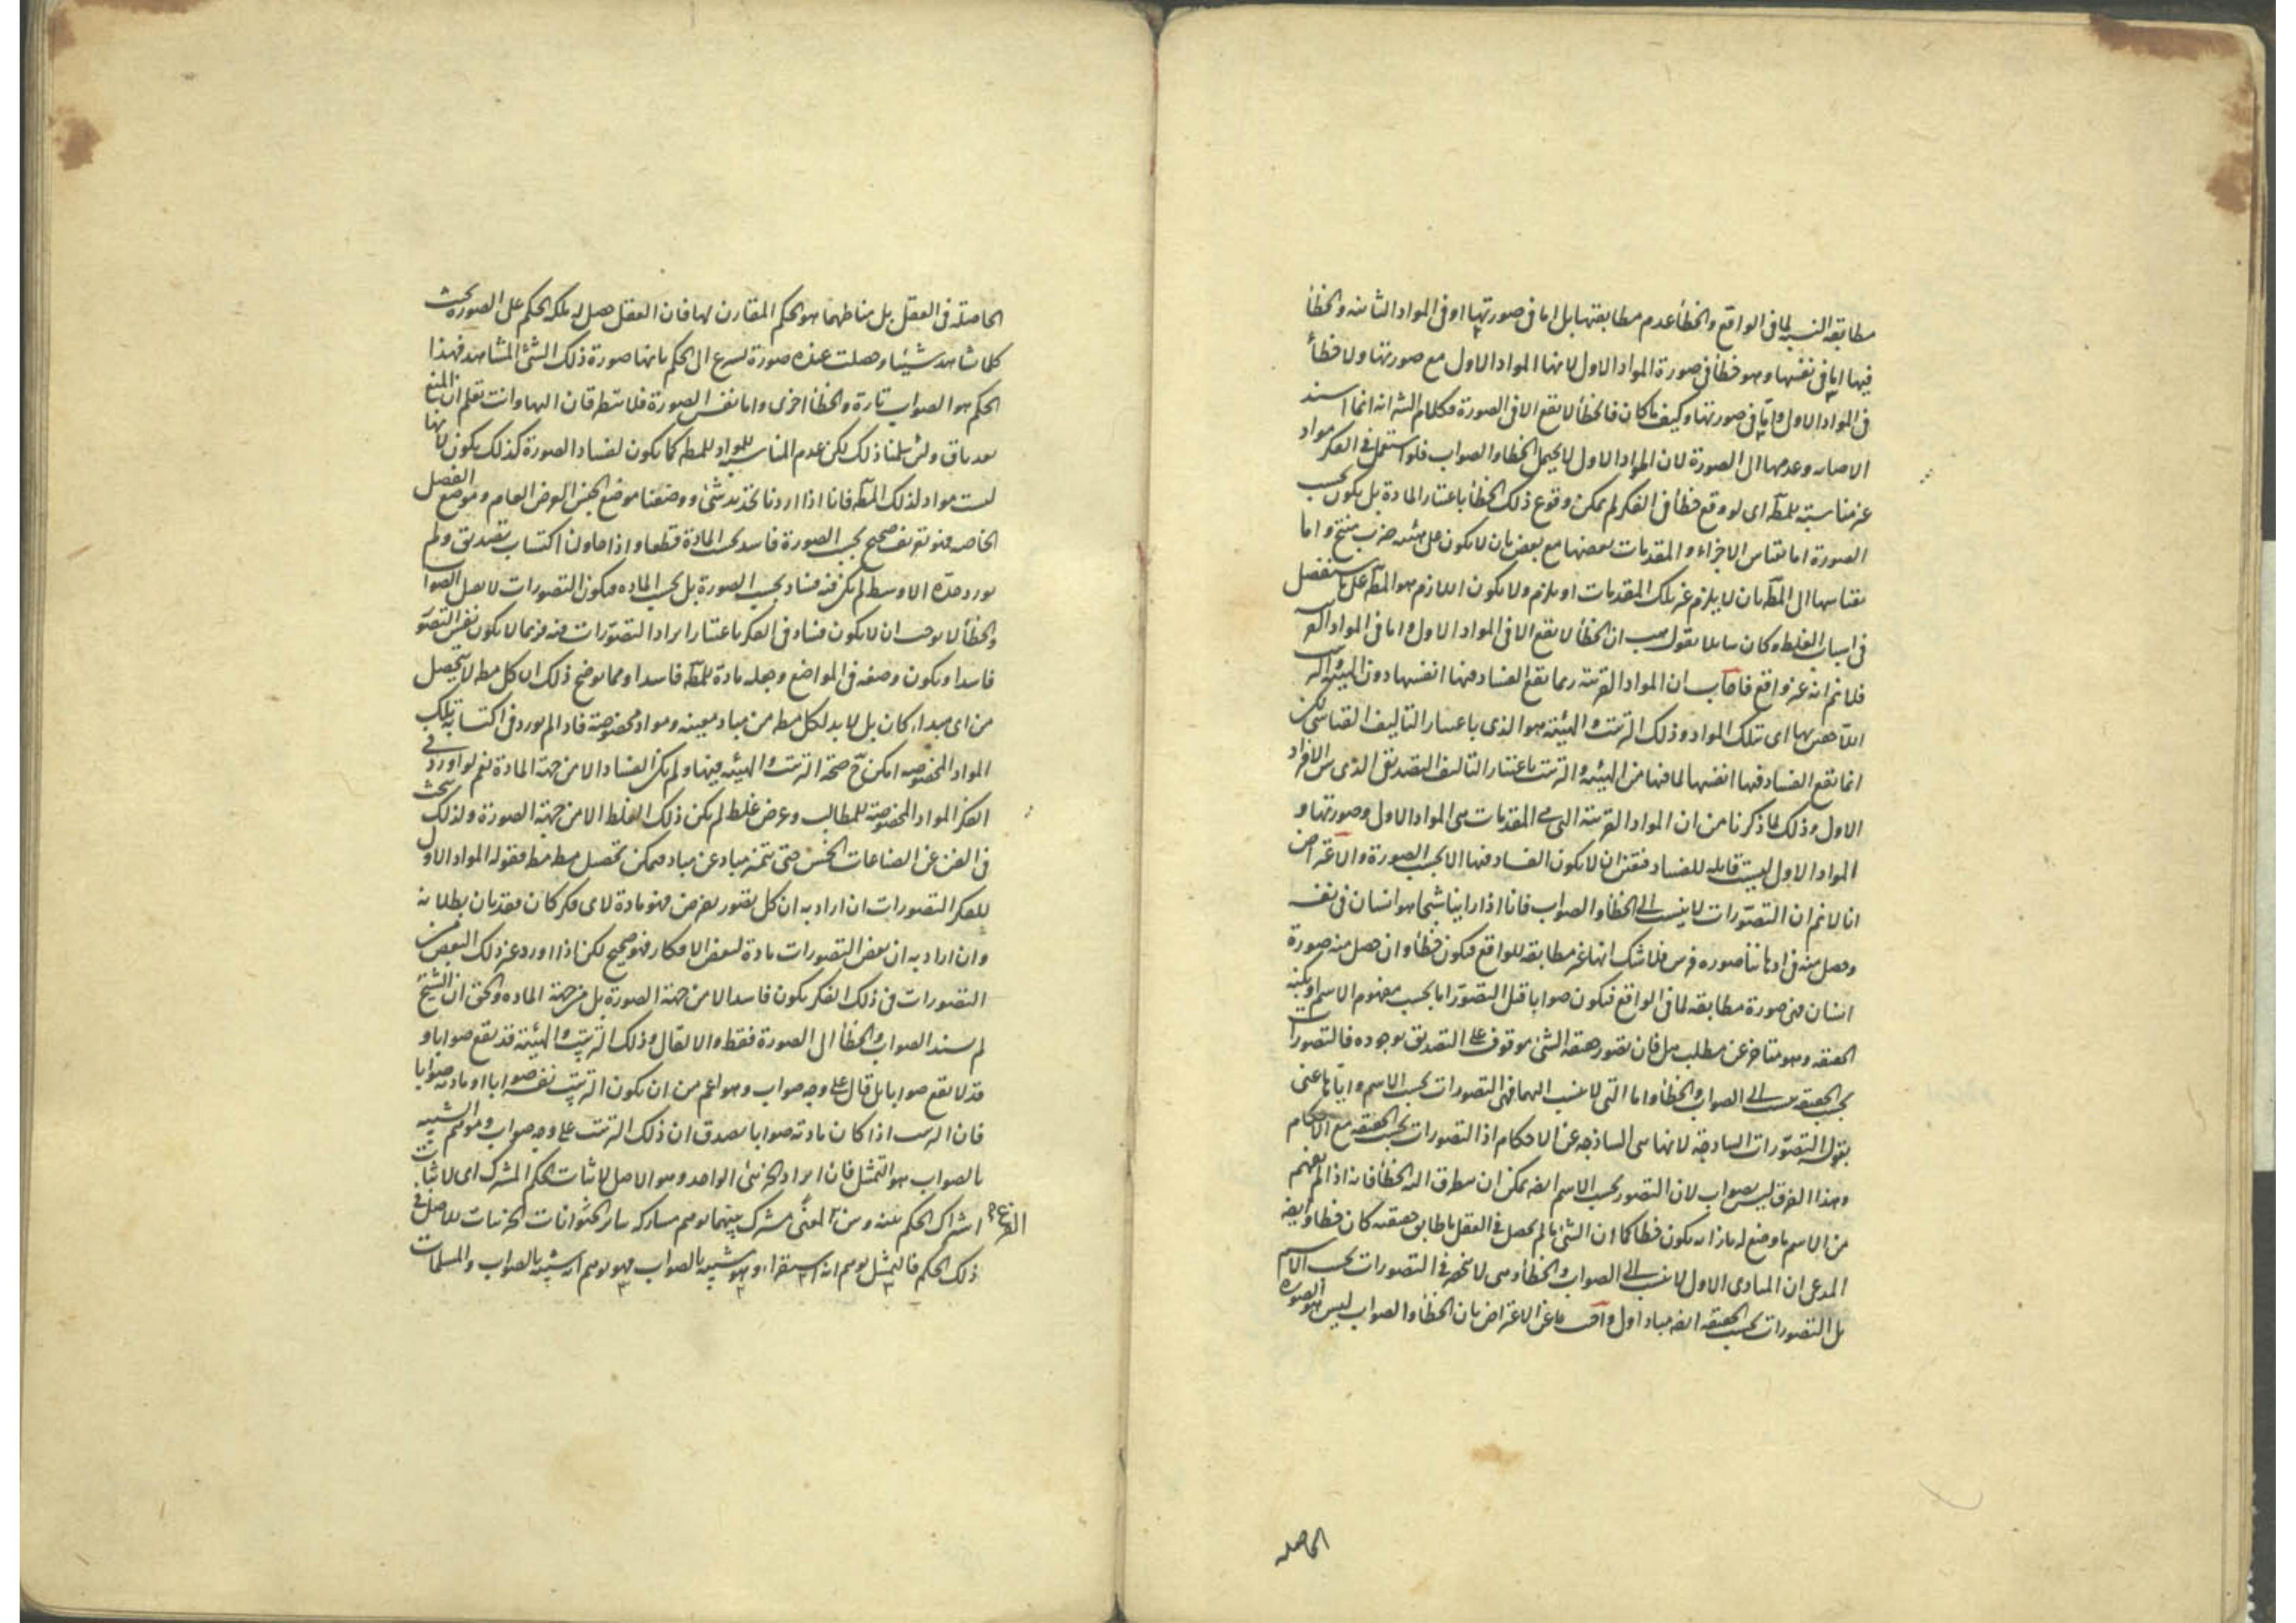 مطابقة النسبة لما فى الواقع والخطأ عدم مطابقتها بل اما فى صورتها او فى المواد الثانية والخطأ
فيها اما فى نفسها وهو خطأ فى صورة المواد الاول لانها المواد الاول مع صورتها ولا خطأ
فى المواد الاول واما فى صورتها وكيف ما كان فالخطأ لا يقع الا فى الصورة فكلام الشه انه انما اسند
الاصابه وعدمها الى الصورة لان المواد الاول لا يحتمل الخطا والصواب فلو استعمل فى الفكر مواد
غير مناسبة للمط اى لو وقع خطأ فى الفكر لم يمكن وقوع ذلك الخطأ باعتبار المادة بل يكون بحسب
الصورة اما بقياس الاجزاء والمقدمات بعضها مع بعض بان لا يكون على هيئه ضرب منتج واما
بقياسها الى المط بان لا يلزم عن تلك المقدمات او يلزم ولا يكون اللازم هو المط على ما ستفصل
فى اسباب الغلط وكان سايلا يقول هب ان الخطأ لا يقع الا فى المواد الاول واما فى المواد
فلانم انه غير واقع فاجاب ان المواد القريبة ربما يقع الفساد فيها انفسها دون الهيئة والترتيب
اللاحقين بها اى بتلك المواد وذلك الترتيب والهيئة هو الذى باعتبار التاليف القياسى لكن
انما يقع الفساد فيها انفسها لما فيها من الهيئة والترتيب باعتبار التاليف التصديقى الذى بين الافراد
الاول وذلك لما ذكرنا من ان المواد القريبة التى هى المقدمات هى المواد الاول وصورتها و
المواد الاول ليست قابله للفساد فتعين ان لا يكون الفساد فيها الا بحسب الصورة والاعتراض
انا لا نم ان التصوّرات لا ينسب الى الخطأ والصواب فانا اذا راينا شبحا هو انسان فى نفسه
وحصل منه فى اذهاننا صوره فرس فلا شك انها غير مطابقه للواقع فيكون خطأ وان حصل منه صورة
انسان فهى صورة مطابقه لما فى الواقع فيكون صوابا قيل التصوّر اما بحسب مفهوم الاسم او بحسب
الحقيقه وهو متاخر عن مطلب هل فان تصور حقيقه الشئ موقوف على التصديق بوجوده فالتصورات
بحسب الحقيقه ينسب الى الصواب والخطأ واما التى لا ينسب اليهما فهى التصورات بحسب الاسم واياها عنى
بقوله التصوّرات الساذجه لانها هى الساذجه عن الاحكام اذ التصورات بحسب الحقيقه مع الاحكام
وهذا الفرق ليس بصواب لان التصور بحسب الاسم ايضه يمكن ان يتطرق اليه الخطأ فانه اذا لم يفهم
من الاسم ما وضع له بازائه يكون خطأ كما ان الشئ ما لم يحصل فى العقل ما طابق حقيقته كان خطأ وايضه
المدعى ان المبادى الاول لا ينسب الى الصواب والخطأ وهى لا تنحصر فى التصورات بحسب الاسم
بل التصورات بحسب الحقيقه ايضه مباد اول واجيب عن الاعتراض بان الخطأ والصواب ليس هو الصورة
الحاصله
الحاصلة فى العقل بل مناطهما هو الحكم المقارن لها فان العقل حصل له ملكه الحكم على الصورة بحيث
كلما شاهد شيئا وحصلت عنده صورة يسرع الى الحكم بانها صورة ذلك الشئ المشاهد فهذا
الحكم هو الصواب تارة والخطأ اخرى واما نفس الصورة فلا يتطرقان اليها وانت تعلم ان المنع
بعد باق ولئن سلمنا ذلك لكن عدم المناسبة للمواد للمط كما يكون لفساد الصورة كذلك يكون لانها
ليست مواد لذلك المط فانا اذا اردنا تحديد شئ ووضعنا موضع الجنس العرض العام وموضع الفصل
الخاصه فهو تعريف صحيح بحسب الصورة فاسد بحسب المادة قطعا واذا حاولنا اكتساب تصديق ولم
نورد حدّه الاوسط لم يكن فيه فساد بحسب الصورة بل بحسب الماده فكون التصورات لا يقبل الصواب
والخطأ لا يوجب ان لا يكون فساد فى الفكر باعتبار ايراد التصوّرات فيه فربما لا يكون نفس التصوّر
فاسدا ويكون وضعه فى المواضع وجعله مادة للمط فاسدا ومما يوضح ذلك ان كل مط لا يتحصل
من اى مبداء كان بل لا بد لكل مط من مباد معينه ومواد مخصوصة فاذا لم يورد فى اكتسابه تلك
المواد المخصوصه امكن ح صحة الترتيب والهيئه فيها ولم يكن الفساد الا من جهة المادة نعم لو اورد فى
الفكر المواد المخصوصة للمطالب وعرض غلط لم يكن ذلك الغلط الا من جهة الصورة ولذلك يبحث
فى الفن عن الصناعات الخمس حتى يتميز مباد عن مباد فيمكن تحصيل مط مط فقوله المواد الاول
للفكر التصورات ان اراد به ان كل تصور يفرض فهو مادة لاى فكر كان فقد بان بطلانه
وان اراد به ان بعض التصورات مادة لبعض الافكار فهو صحيح لكن اذا اورد غير ذلك البعض من
التصورات فى ذلك الفكر يكون فاسدا لا من جهة الصورة بل من جهة الماده والحق ان الشيخ
لم يسند الصواب والخطأ الى الصورة فقط والا لقال وذلك الترتيب والهيئة قد يقع صوابا و
قد لا يقع صوابا بل قال على وجه صواب وهو اعم من ان يكون الترتيب نفسه صوابا او مادته صوابا
فان الترتيب اذا كان مادته صوابا يصدق ان ذلك الترتيب على وجه صواب وموهم الشبيه
بالصواب هو التمثيل فان ايراد الجزئى الواحد وهو الاصل لاثبات الحكم المشترك اى لاثبات
اشتراك الحكم بينه وبين الفرع لمعنى مشترك بينهما يوهم مشاركه ساير الحيوانات الجزئيات للاصل فى
ذلك الحكم فالتمثيل يوهم انه استقراء وهو شبيه بالصواب فهو يوهم انه شبيه بالصواب والمسلمات